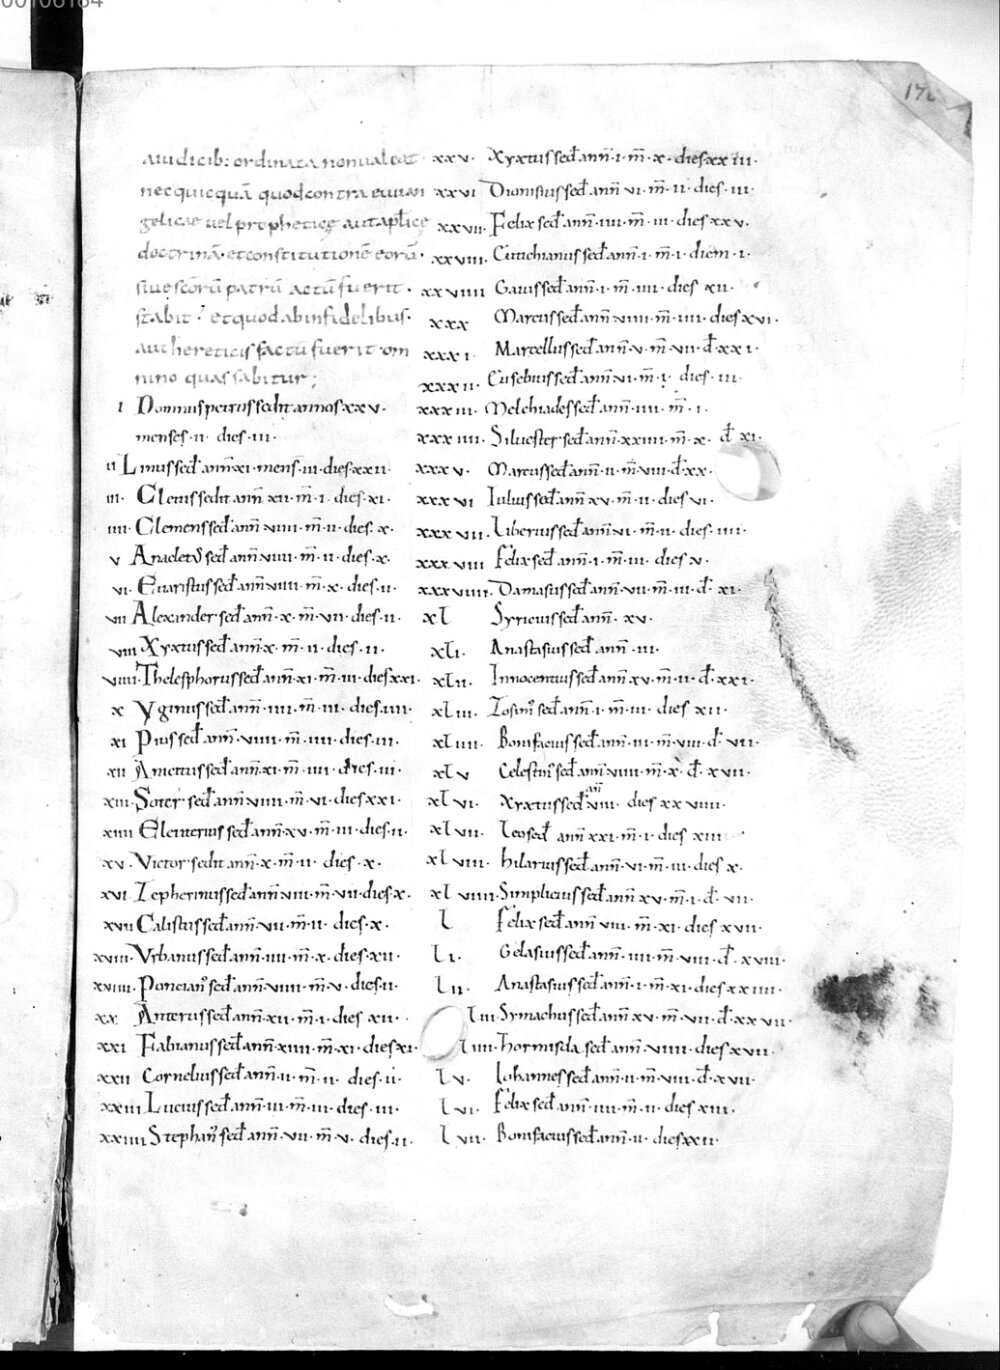 00106184
172
auidicib: ordinata non ualeat
nec quicquā quod contra euuan
gelicae uel propheticę aut apłicę
doctrinā· et constitutionē eorū·
siue scōrū patrū actū fuerit·
stabit? et quod ab infidelibus·
aut hereticis factū fuerit om
nino quassabitur;
I Domnus petrus sedit annos xxv·
menses·II· dies·III·
II Linus sed̄ ann̄ xi· mens̄·III· dies·xxii·
III· Cletus sedit ann̄ xii· m̄·I· dies·xi·
IIII· Clemens sed̄ ann̄ viiii· m̄·II· dies·x·
v Anacletꝰ sed̄ ann̄·viiii· m̄·II· dies·x·
vi· Euaristus sed̄ ann̄·viiii· m̄·x· dies·II·
vii Alexander sed̄ ann̄·x· m̄·vii· dies·II·
viii· Xyxtus sed̄ ann̄·x· m̄·II· dies·II·
viiii· Thelesphorus sed̄ ann̄·xi· m̄·III· dies xxi·
x Yginus sed̄ ann̄·IIII· m̄·III· dies·IIII·
xi Pius sed̄ ann̄·viiii· m̄·IIII· dies·III·
xii Anicetus sed̄ ann̄·xi· m̄·IIII· dies·III·
xiii· Soter sed̄ ann̄·viiii· m̄·vi· dies xxi·
xiiii Eleuterius sed̄ ann̄·xv· m̄·III· dies·II·
xv· Victor sedit ann̄·x· m̄·II· dies·x·
xvi· Zepherinus sed̄ ann̄·viii· m̄·vii· dies·x·
xvii Calistus sed̄ ann̄·vii· m̄·II· dies·x·
xviii· Vrbanus sed̄ ann̄·IIII· m̄·x· dies·xii·
xviiii· Poncianꝰ sed̄ ann̄·viiii· m̄·v· dies·II·
xx Anterus sed̄ ann̄·xii· m̄·I· dies xii·
xxi Fabianus sed̄ ann̄·xiiii· m̄·xi· dies xi·
xxii Cornelius sed̄ ann̄·II· m̄·II· dies·II·
xxiii Lucius sed̄ ann̄·III· m̄·III· dies·III·
xxiiii Stephanꝰ sed̄ ann̄·vii· m̄·v· dies·II·
xxv· Xyxtus sed̄ ann̄·I· m̄·x· dies xxiii·
xxvi Dionisius sed̄ ann̄ vi· m̄·II· dies·III·
xxvii· Felix sed̄ ann̄·IIII· m̄·III· dies xxv·
xxviii· Eutichianus sed̄ ann̄·I· m̄·I· diem·I·
xxviiii Gaius sed̄ ann̄·I· m̄·IIII· dies xii·
xxx Marcus sed̄ ann̄·viiii· m̄·IIII· dies xvi·
xxxi· Marcellus sed̄ ann̄·v· m̄·vii· d̄ xxi·
xxxii· Eusebius sed̄ ann̄·vi· m̄·I· dies·III·
xxxiii· Melchiades sed̄ ann̄·IIII· m̄·I·
xxxiiii· Siluester sed̄ ann̄·xxiiii· m̄·x· d̄ xi·
xxxv· Marcus sed̄ ann̄·II· m̄·viii· d̄·xx·
xxxvi Iulius sed̄ ann̄ xv· m̄·II· dies vi·
xxxvii· Liberius sed̄ ann̄·vi· m̄·II· dies·IIII·
xxxviii Felix sed̄ ann̄·I· m̄·III· dies·v·
xxxviiii· Damasus sed̄ ann̄·vii· m̄·III· d̄ xi·
xl Syricius sed̄ ann̄· xv·
xli· Anastasius sed̄ ann̄·III·
xlii· Innocentius sed̄ ann̄ xv· m̄·II· d̄·xxi·
xliii· Zosimꝰ sed̄ ann̄·I· m̄·III· dies xii·
xliiii· Bonifacius sed̄ ann̄·III· m̄·viii· d̄ vii·
xlv Celestinꝰ sed̄ ann̄ viiii· m̄·x· d̄·xvii·
xlvi· Xyxtus sed̄ ann̄ viii· dies xxviiii·
xlvii· Leo sed̄ ann̄ xxi· m̄·I· dies xiii
xlviii· Hilarius sed̄ ann̄·vi· m̄·III· dies x·
xlviiii· Simplicius sed̄ ann̄ xv· m̄·I· d̄ vii·
l Felix sed̄ ann̄ viii· m̄·xi· dies xvii·
li· Gelasius sed̄ ann̄·IIII· m̄·viii· d̄·xviii·
lii· Anastasius sed̄ ann̄·I· m̄·xi· dies xxiiii·
liii· Symachus sed̄ ann̄ xv· m̄·vii· d̄·xxvii·
liiii· Hormisda sed̄ ann̄·viiii· dies xvii·
lv· Iohannes sed̄ ann̄·II· m̄·viii· d̄·xvii·
lvi· Felix sed̄ ann̄·IIII· m̄·II· dies xiii·
lvii· Bonifacius sed̄ ann̄·II· dies xxii·